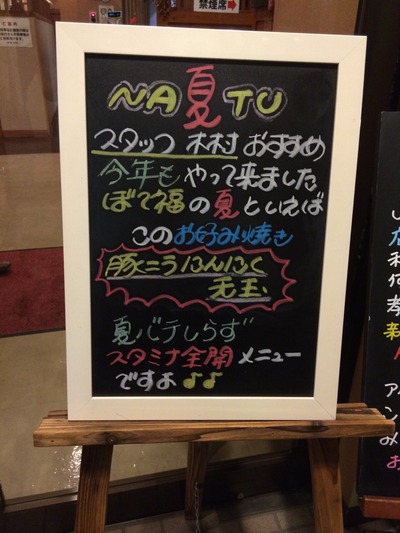 禁煙席
NA夏TU
スタッフ 木村 おすすめ
今年も やって来ました
ぼて福の夏といえば
この お好み焼き
豚ニラにんにく
天玉
夏バテしらず
スタミナ全開メニュー
ですよ